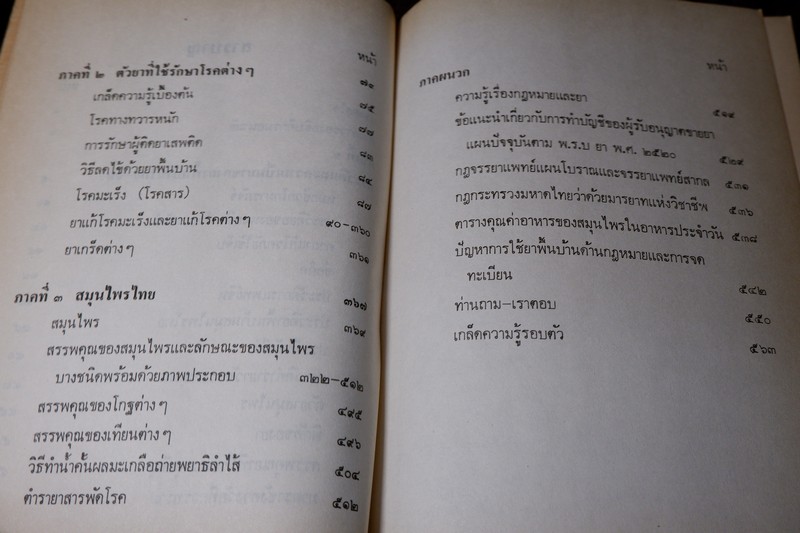 หน้า
ภาคที่ ๒ ตัวยาที่ใช้รักษาโรคต่าง ๆ ๗๑
เกล็ดความรู้เบื้องต้น ๗๕
โรคทางทวารหนัก ๗๗
การรักษาผู้ติดยาเสพติด ๘๑
วิธีลดไข้ด้วยยาพื้นบ้าน ๘๔
โรคมะเร็ง (โรคสาร) ๘๗
ยาแก้โรคมะเร็งและยาแก้โรคต่าง ๆ ๙๐-๓๖๐
ยาเกร็ดต่าง ๆ ๓๖๑
ภาคที่ ๓ สมุนไพรไทย ๓๖๗
สมุนไพร ๓๖๙
สรรพคุณของสมุนไพรและลักษณะของสมุนไพร
บางชนิดพร้อมด้วยภาพประกอบ ๓๒๒-๕๑๒
สรรพคุณของโกฐต่าง ๆ ๔๙๕
สรรพคุณของเทียนต่าง ๆ ๔๙๖
วิธีทำน้ำคั้นผลมะเกลือถ่ายพยาธิลำไส้ ๕๐๔
ตำรายาสารพัดโรค ๕๑๒
หน้า
ภาคผนวก
ความรู้เรื่องกฎหมายและยา ๕๑๙
ข้อแนะนำเกี่ยวกับการทำบัญชีของผู้รับอนุญาตขายยา
แผนปัจจุบันตาม พ.ร.บ ยา พ.ศ. ๒๕๒๐ ๕๒๙
กฎจรรยาแพทย์แผนโบราณและจรรยาแพทย์สากล ๕๓๑
กฎกระทรวงมหาดไทยว่าด้วยมารยาทแห่งวิชาชีพ ๕๓๖
ตารางคุณค่าอาหารของสมุนไพรในอาหารประจำวัน ๕๓๘
ปัญหาการใช้ยาพื้นบ้านด้านกฎหมายและการจด
ทะเบียน ๕๔๒
ท่านถาม-เราตอบ ๕๕๐
เกล็ดความรู้รอบตัว ๕๖๓